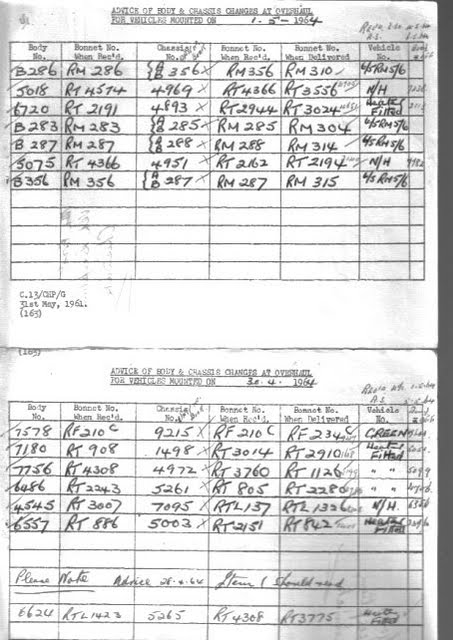 ADVICE OF BODY & CHASSIS CHANGES AT OVERHAUL
FOR VEHICLES MOUNTED ON 1.5-1964
A.S.
Body No. Bonnet No. When Rec'd. Chassis No. Bonnet No. When Rec'd. Bonnet No. When Delivered Vehicle No.
B286 RM 286 {A B 356 RM356 RM310 RM5/6
5018 RT 4574 4969 RT4366 RT3556 N/H
6720 RT 2191 4893 RT2944 RT3024 Heater Fitted
B283 RM 283 {A B 285 RM 285 RM 304 RM5/6
B 287 RM 287 {A B 288 RM 288 RM 314 RM5/6
5075 RT 4366 4951 RT 2162 RT 2194 N/H
B356 RM 356 {A B 287 RM 287 RM 315 RM5/6
C.13/CHP/G
31st May, 1961.
(163)
(163)
ADVICE OF BODY & CHASSIS CHANGES AT OVERHAUL
FOR VEHICLES MOUNTED ON 30.4.1964
A.S.
Body No. Bonnet No. When Rec'd. Chassis No. Bonnet No. When Rec'd. Bonnet No. When Delivered Vehicle No.
7578 RF210C 9215 RF 210C RF 234C GREEN
7180 RT 908 1498 RT3014 RT 2910 Heater Fitted
7756 RT 4308 4972 RT 3760 RT 1126 " "
6486 RT 2243 5261 RT 805 RT 2280 " "
4545 RT 3007 7095 RTL137 RTL1326 N/H.
6557 RT 886 5003 RT2151 RT 842 Heater Fitted
Please Note Advice 28.4.64 Item 1 should read
6624 RTL1423 5265 RT 4308 RT3775 Heater Fitted